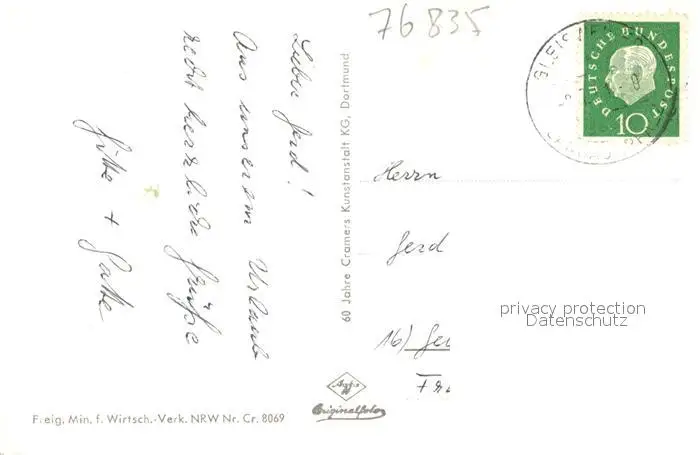 76835
Lieber Gerd!
Aus unserem Urlaub
recht herzliche Grüße
Gitte +
60 Jahre Cramers Kunstanstalt KG, Dortmund
DEUTSCHE BUNDESPOST
10
Herrn
Gerd
privacy protection
Datenschutz
16)
Agfa
Originalfoto
F.eig. Min. f. Wirtsch.-Verk. NRW Nr. Cr. 8069